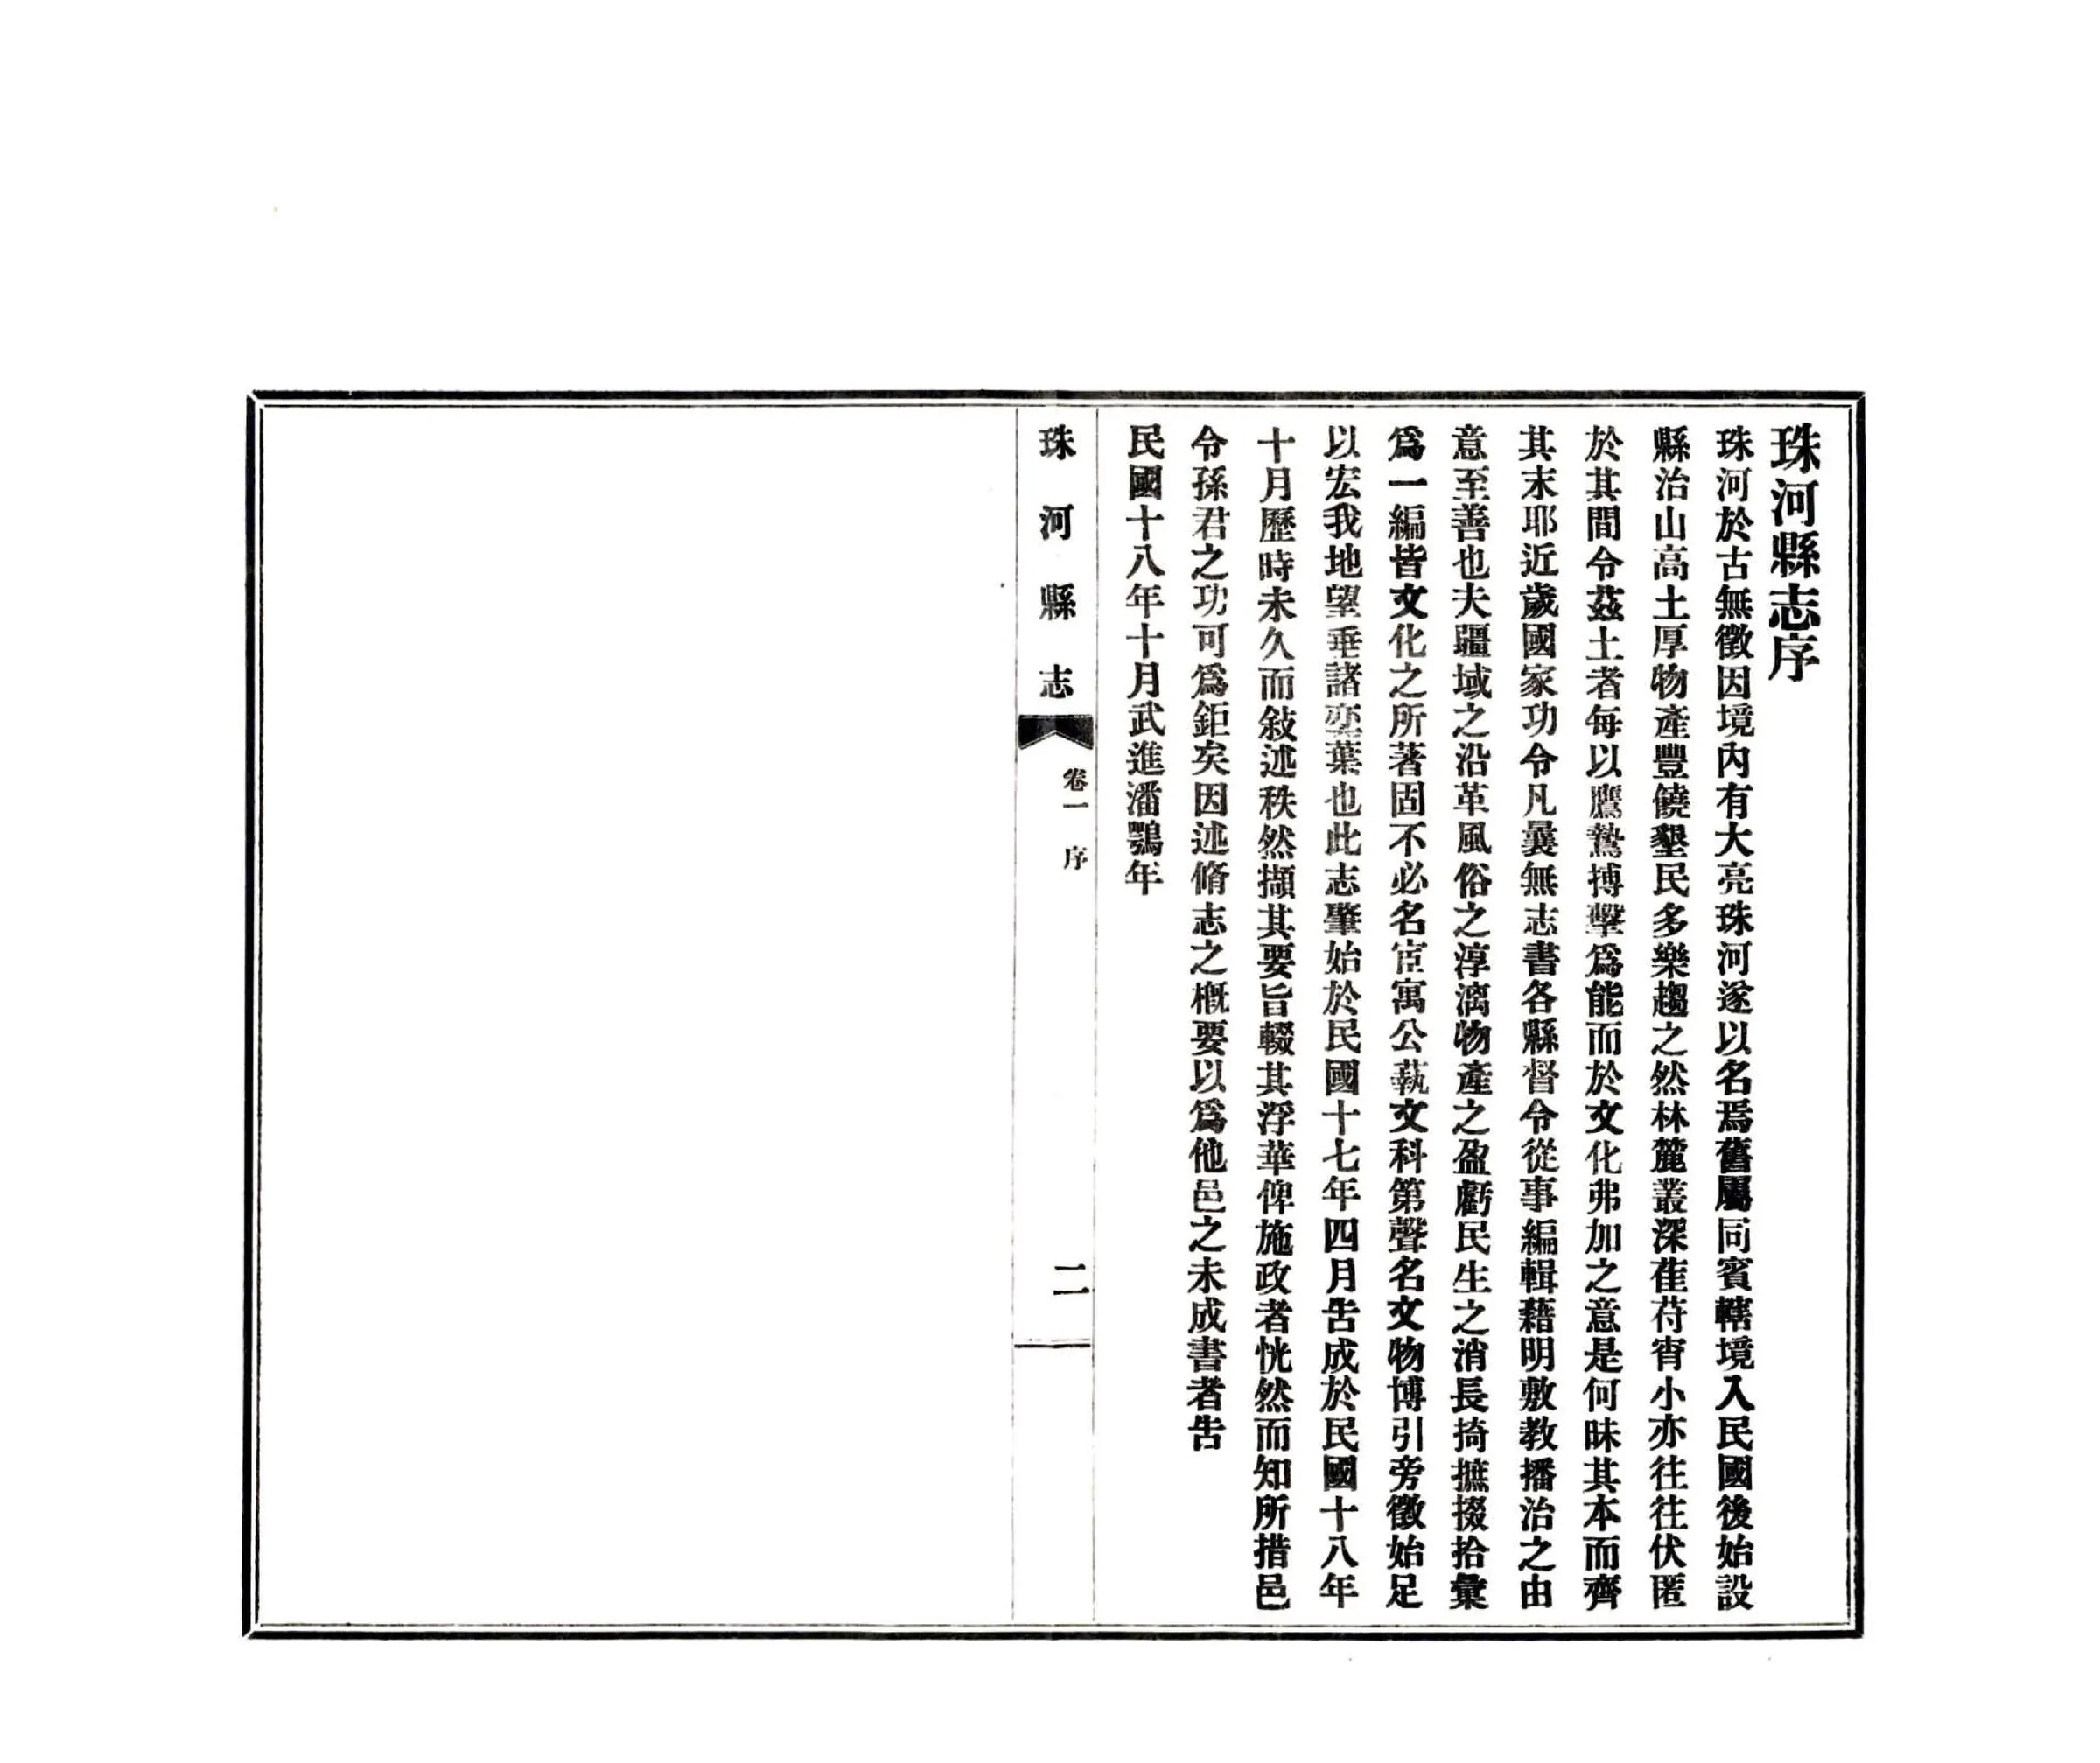 珠河縣志序
珠河於古無徵因境內有大亮珠河遂以名焉舊屬同賓轄境入民國後始設
縣治山高土厚物產豐饒墾民多樂趨之然林麓叢深萑苻宵小亦往往伏匿
於其間令茲土者每以鷹鷙搏擊爲能而於文化弗加之意是何昧其本而齊
其末耶近歲國家功令凡曩無志書各縣督令從事編輯藉明敷教播治之由
意至善也夫疆域之沿革風俗之淳漓物產之盈虧民生之消長掎摭掇拾彙
爲一編皆文化之所著固不必名宦寓公蓺文科第聲名文物博引旁徵始足
以宏我地望垂諸奕葉也此志肇始於民國十七年四月告成於民國十八年
十月歷時未久而敍述秩然擷其要旨輟其浮華俾施政者恍然而知所措邑
令孫君之功可爲鉅矣因述脩志之概要以爲他邑之未成書者告
民國十八年十月武進潘鶚年
珠河縣志
卷一 序
二